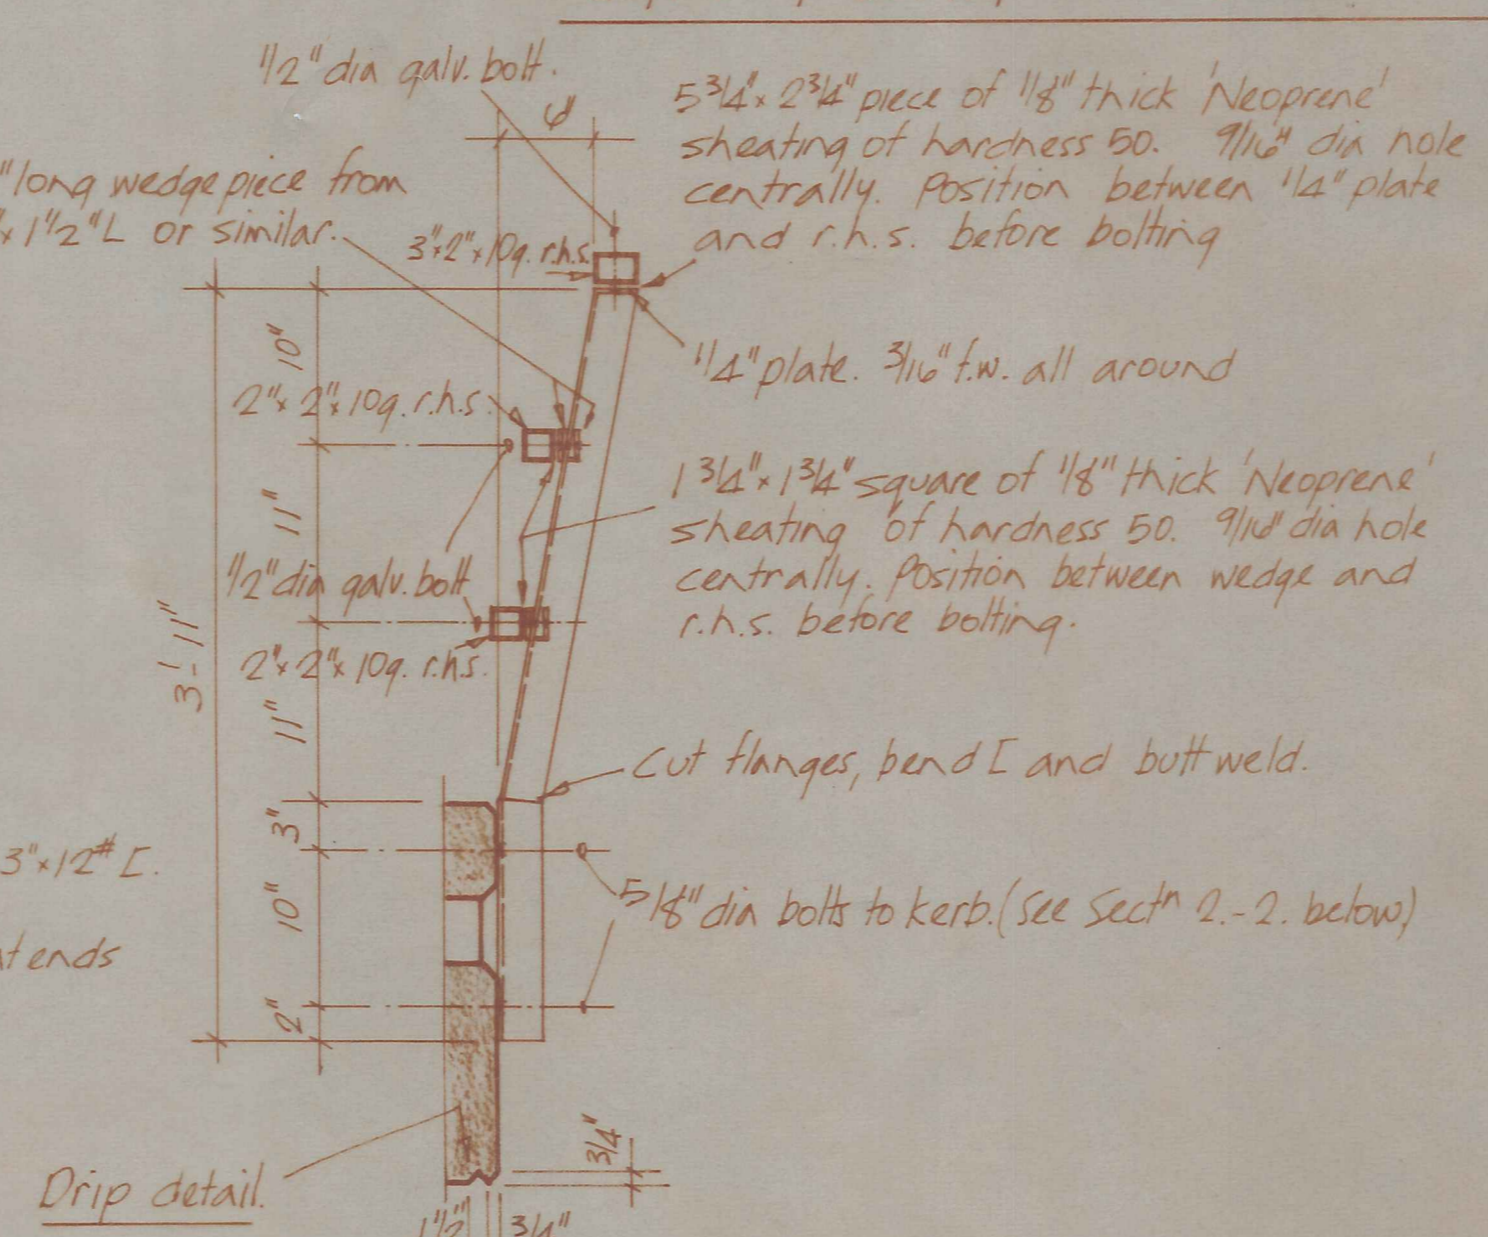 1/2" dia galv. bolt.
6"
5 3/4" x 2 3/4" piece of 1/8" thick 'Neoprene'
sheating of hardness 50. 9/16" dia hole
centrally. Position between 1/4" plate
and r.h.s. before bolting
"long wedge piece from
"x 1 1/2" L or similar.
3"x2"x10g. r.h.s.
10"
1/4" plate. 3/16" f.w. all around
2"x2"x10g. r.h.s.
11"
1 3/4" x 1 3/4" square of 1/8" thick 'Neoprene'
sheating of hardness 50. 9/16" dia hole
centrally. Position between wedge and
r.h.s. before bolting.
1/2" dia galv. bolt
3'-11"
2"x2"x10g. r.h.s.
11"
Cut flanges, bend [ and butt weld.
3"
3"x12# [.
10"
5/8" dia bolts to kerb. (See Sectn 2.-2. below)
at ends
2"
3/4"
Drip detail.
1 1/2"
3/4"